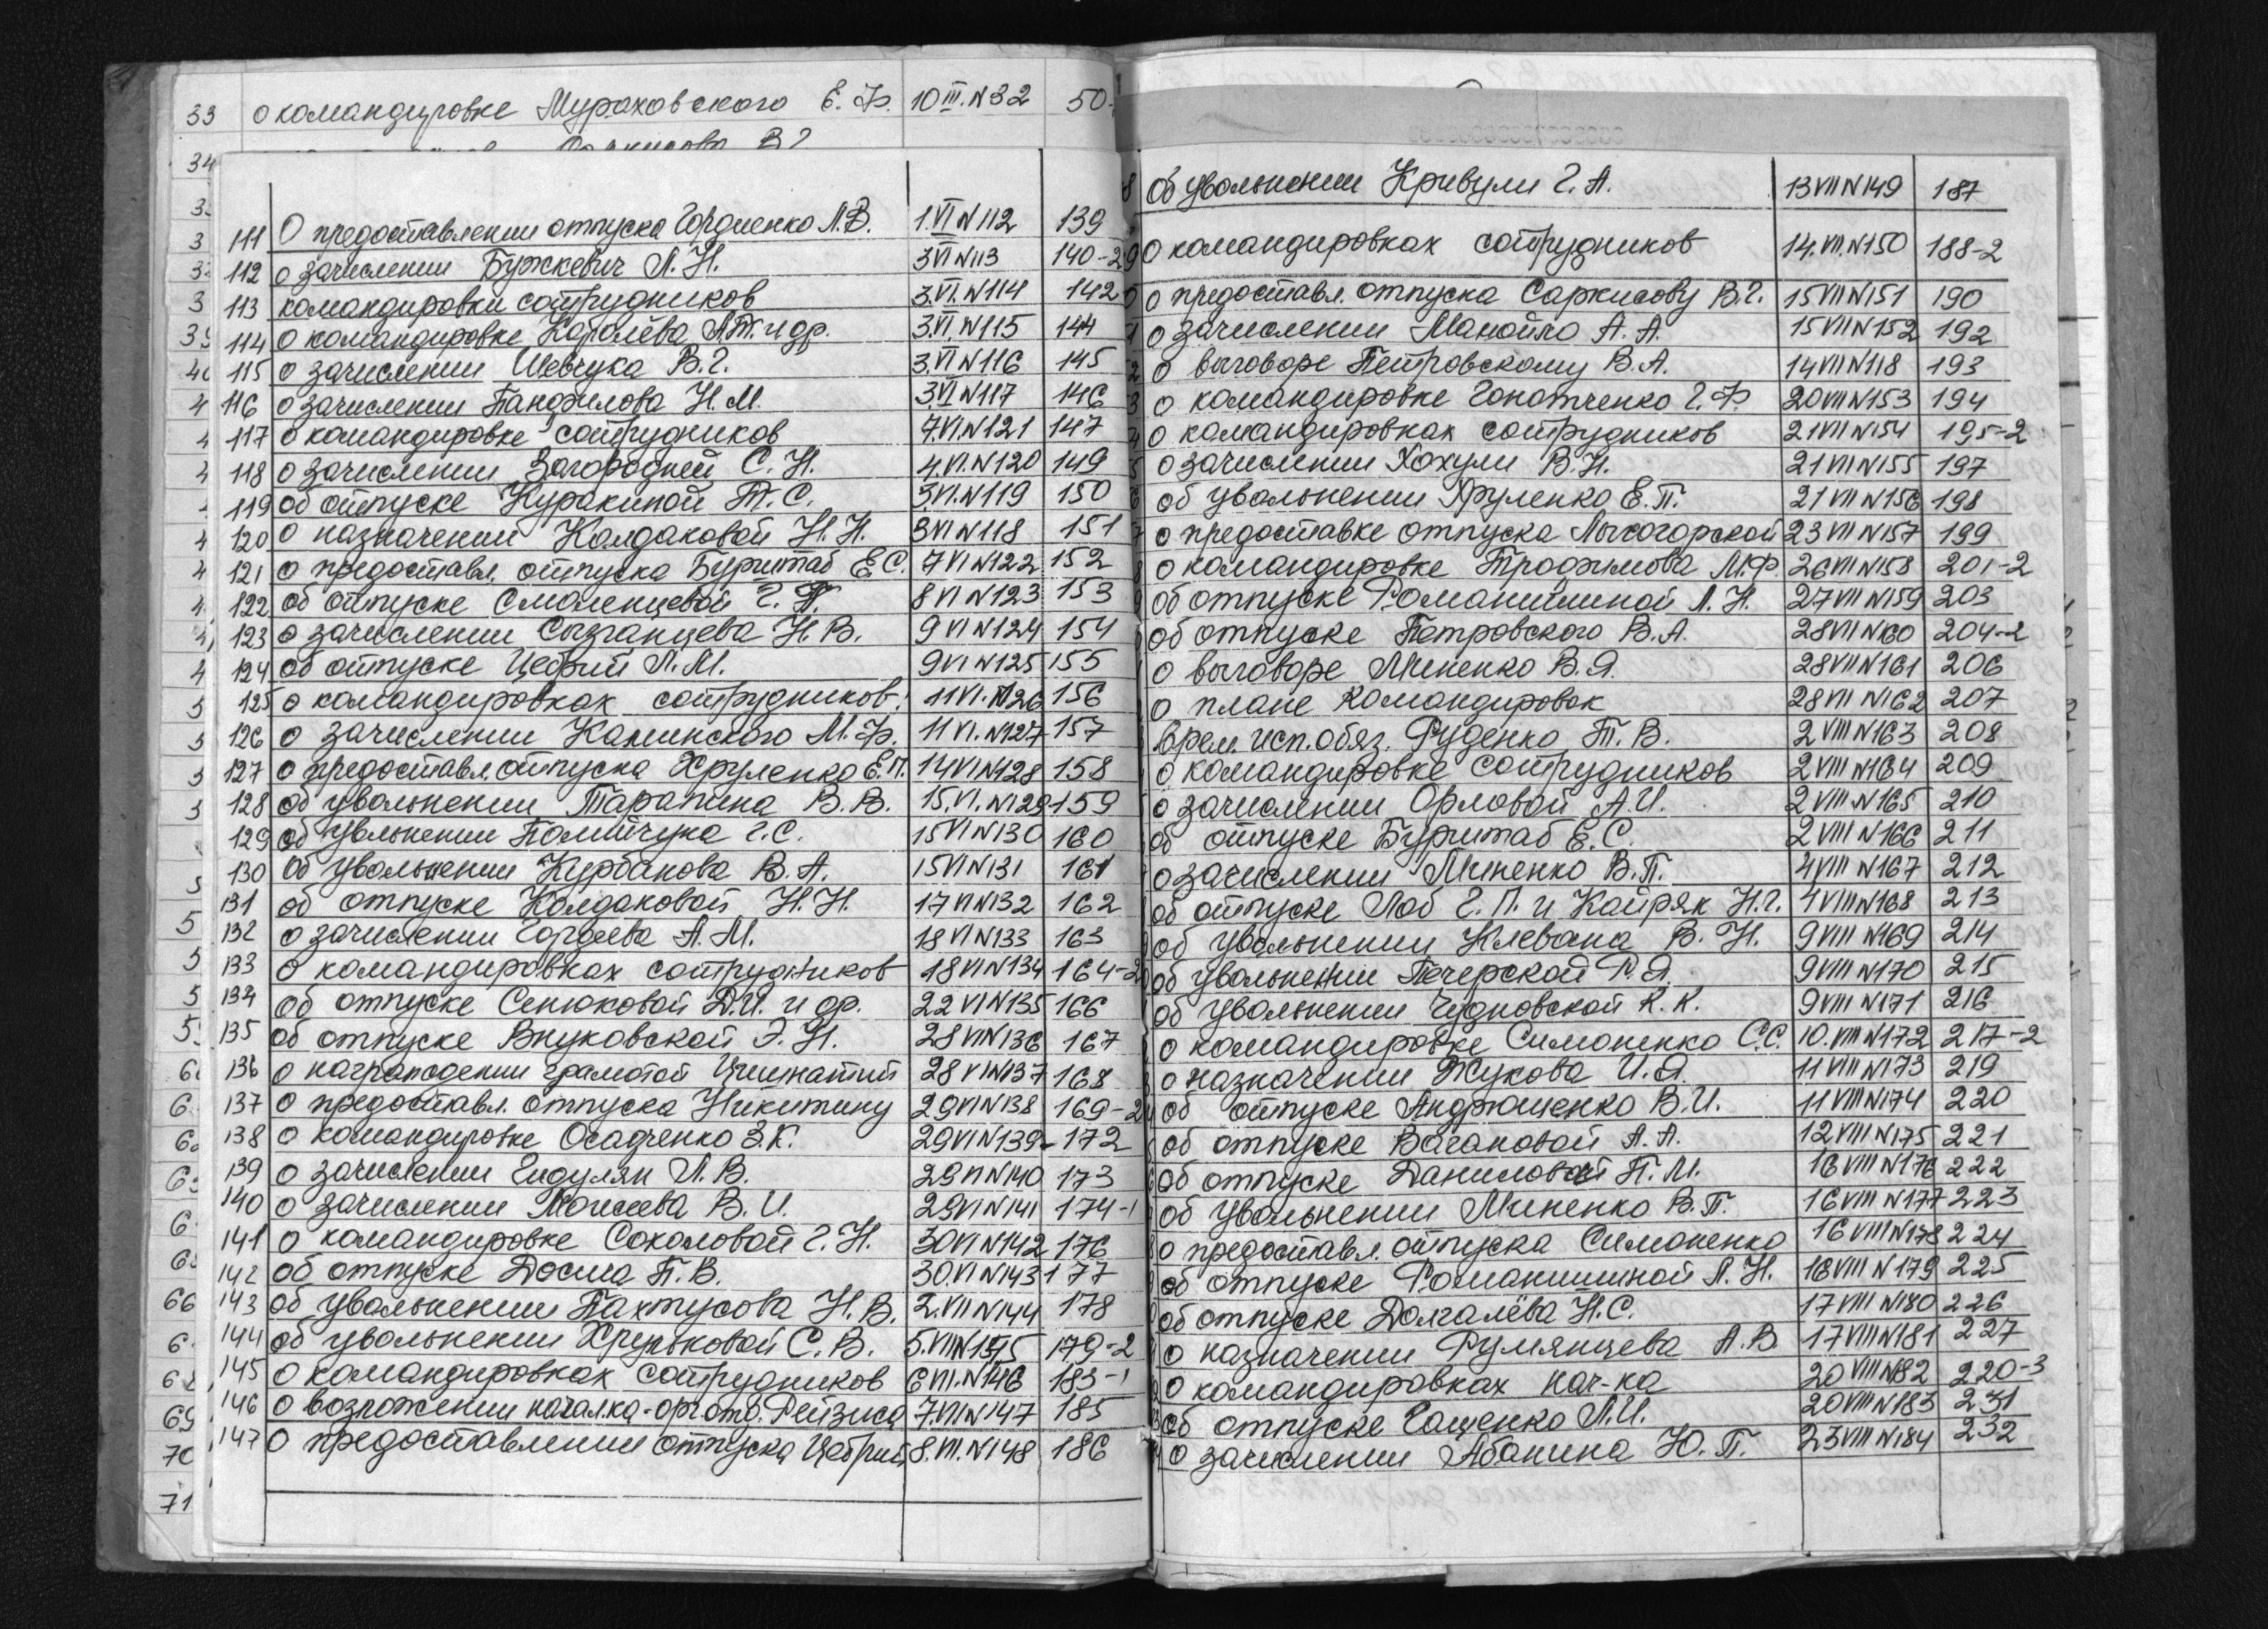 33 о командировке Мураховского Е. Ф. 10 III. N32 50-
34
111 О предоставлении отпуска Гордиенко Л.В. 1.VI N112 139
112 о зачислении Бужкевич Л. Н. 3VI N113 140-2
113 командировки сотрудников 3.VI. N114 142
114 о командировке Королёва А.Т. и др. 3.VI. N115 144
115 о зачислении Шевчука В.Г. 3.VI N116 145
116 о зачислении Панфилова Н.М. 3VI N117 146
117 о командировке сотрудников 7.VI. N121 147
118 о зачислении Загородней С. Н. 4.VI. N120 149
119 об отпуске Куракиной Т. С. 3.VI. N119 150
120 о назначении Колдаковой Н. Н. 3VI N118 151
121 о предоставл. отпуска Бурштаб Е.С. 7 VI N122 152
122 об отпуске Смоленцевой Г. П. 8 VI N123 153
123 о зачислении Сызганцева Н. В. 9 VI N124 154
124 об отпуске Цебрий Л. М. 9VI N125 155
125 о командировках сотрудников 11 VI. N126 156
126 о зачислении Каминского М. Ф. 11 VI. N127 157
127 о предоставл. отпуска Хруленко Е.П. 14 VI N128 158
128 об увольнении Тарапина В. В. 15.VI. N129 159
129 об увольнении Полийчука Г.С. 15 VI N130 160
130 об увольнении Курбанова В. А. 15 VI N131 161
131 об отпуске Колдаковой Н. Н. 17 VI N132 162
132 о зачислении Гордеева А. М. 18 VI N133 163
133 о командировках сотрудников 18 VI N134 164-2
134 об отпуске Сенюковой Д.И. и др. 22 VI N135 166
135 об отпуске Внуковской Э. Н. 28 VI N136 167
136 о награждении грамотой 28 VI N137 168
137 о предоставл. отпуска Никитину 29 VI N138 169-2
138 о командировке Осадченко З.К. 29 VI N139 172
139 о зачислении Гидулян Л. В. 29 VI N140 173
140 о зачислении Моисеева В. И. 29 VI N141 174-1
141 о командировке Соколовой Г. Н. 30 VI N142 176
142 об отпуске Досича П. В. 30.VI N143 177
143 об увольнении Пахтусова Н. В. 2.VII N144 178
144 об увольнении Хрульковой С. В. 5.VII N145 179-2
145 о командировках сотрудников 6 VII. N146 183-1
146 о возложении начал.ка-орг.отд. Рейзиса 7.VII N147 185
147 О предоставлении отпуска Цебрий 8. VII. N148 186
8 Об увольнении Кривули Г. А. 13 VII N149 187
9 О командировках сотрудников 14. VII. N150 188-2
0 о предоставл. отпуска Саркисову В.Г. 15 VII N151 190
1 о зачислении Манойло А. А. 15 VII N152 192
2 о выговоре Петровскому В.А. 14 VII N118 193
3 о командировке Гонотченко Г. Ф. 20 VII N153 194
4 о командировках сотрудников 21 VII N154 195-2
5 о зачислении Хохули В. Н. 21 VII N155 197
6 об увольнении Хруленко Е. П. 21 VII N156 198
7 о предоставке отпуска Лысогорской 23 VII N157 199
8 о командировке Трофимова М.Ф. 26 VII N158 201-2
9 об отпуске Романишиной Л. Н. 27 VII N159 203
об отпуске Петровского В.А. 28 VII N160 204-2
о выговоре Миненко В. Я. 28 VII N161 206
о плане командировок 28 VII N162 207
врем. исп. обяз. Руденко Т. В. 2 VIII N163 208
о командировке сотрудников 2 VIII N164 209
о зачислении Орловой А.И. 2 VIII N165 210
об отпуске Бурштаб Е.С. 2 VIII N166 211
о зачислении Миненко В.П. 4 VIII N167 212
об отпуске Лоб Г. П. и Кайряк Н.Г. 4 VIII N168 213
об увольнении Клевана В. Н. 9 VIII N169 214
об увольнении Печерской Р. Я. 9 VIII N170 215
об увольнении Чудновской К. К. 9 VIII N171 216
о командировке Симоненко С.С. 10. VIII N172 217-2
о назначении Жукова И. Я. 11 VIII N173 219
об отпуске Андрющенко В.И. 11 VIII N174 220
об отпуске Вагановой А. А. 12 VIII N175 221
об отпуске Даниловой П. М. 16 VIII N176 222
об увольнении Миненко В. П. 16 VIII N177 223
о предоставл. отпуска Симоненко 16 VIII N178 224
об отпуске Романишиной Л. Н. 16 VIII N179 225
об отпуске Долгалёва Н.С. 17 VIII N180 226
о назначении Румянцева А. В. 17 VIII N181 227
о командировках нач-ка 20 VIII N182 220-3
об отпуске Гащенко Л.И. 20 VIII N183 231
о зачислении Абанина Ю. П. 23 VIII N184 232